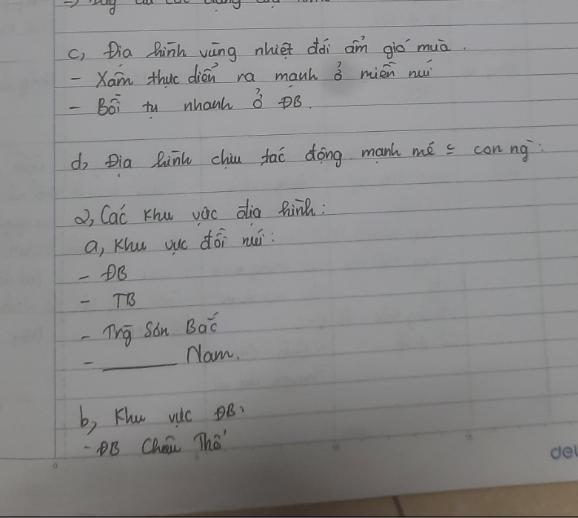 c, Địa hình vùng nhiệt đới ẩm gió mùa.
- Xâm thực diễn ra mạnh ở miền núi
- Bồi tụ nhanh ở ĐB.
d, Địa hình chịu tác động mạnh mẽ = con ng`.
2, Các khu vực địa hình:
a, Khu vực đồi núi:
- ĐB
- TB
- Trg Sơn Bắc
- ______ Nam.
b, Khu vực ĐB:
- ĐB Châu Thổ